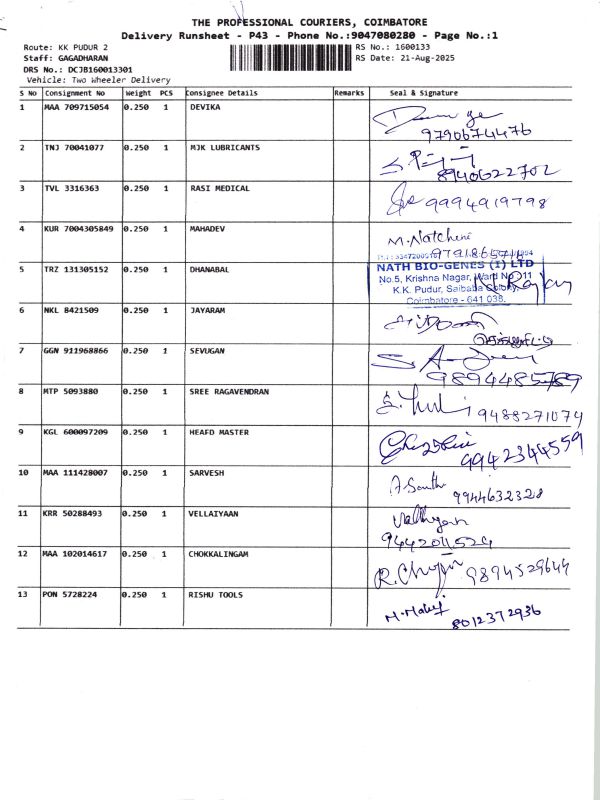 THE PROFESSIONAL COURIERS, COIMBATORE
Delivery Runsheet - P43 - Phone No.:9047080280 - Page No.:1
Route: KK PUDUR 2
RS No.: 1600133
Staff: GAGADHARAN
RS Date: 21-Aug-2025
DRS No.: DCJB160013301
Vehicle: Two Wheeler Delivery
S No Consignment No Weight PCS Consignee Details Remarks Seal & Signature
1 MAA 709715054 0.250 1 DEVIKA
9790674476
2 TNJ 70041077 0.250 1 MJK LUBRICANTS
8940622702
3 TVL 3316363 0.250 1 RASI MEDICAL
9994919798
4 KUR 7004305849 0.250 1 MAHADEV
M.Natcheni
5 TRZ 131305152 0.250 1 DHANABAL
NATH BIO-GENES (I) LTD
No.5, Krishna Nagar, Ward No. 11
K.K. Pudur, Saibaba Colony,
Coimbatore - 641 038.
6 NKL 8421509 0.250 1 JAYARAM
7 GGN 911968866 0.250 1 SEVUGAN
9894485789
8 MTP 5093880 0.250 1 SREE RAGAVENDRAN
9488271074
9 KGL 600097209 0.250 1 HEAFD MASTER
9942344559
10 MAA 111428007 0.250 1 SARVESH
9944632328
11 KRR 50288493 0.250 1 VELLAIYAAN
9442011524
12 MAA 102014617 0.250 1 CHOKKALINGAM
9894529644
13 PON 5728224 0.250 1 RISHU TOOLS
8012372936